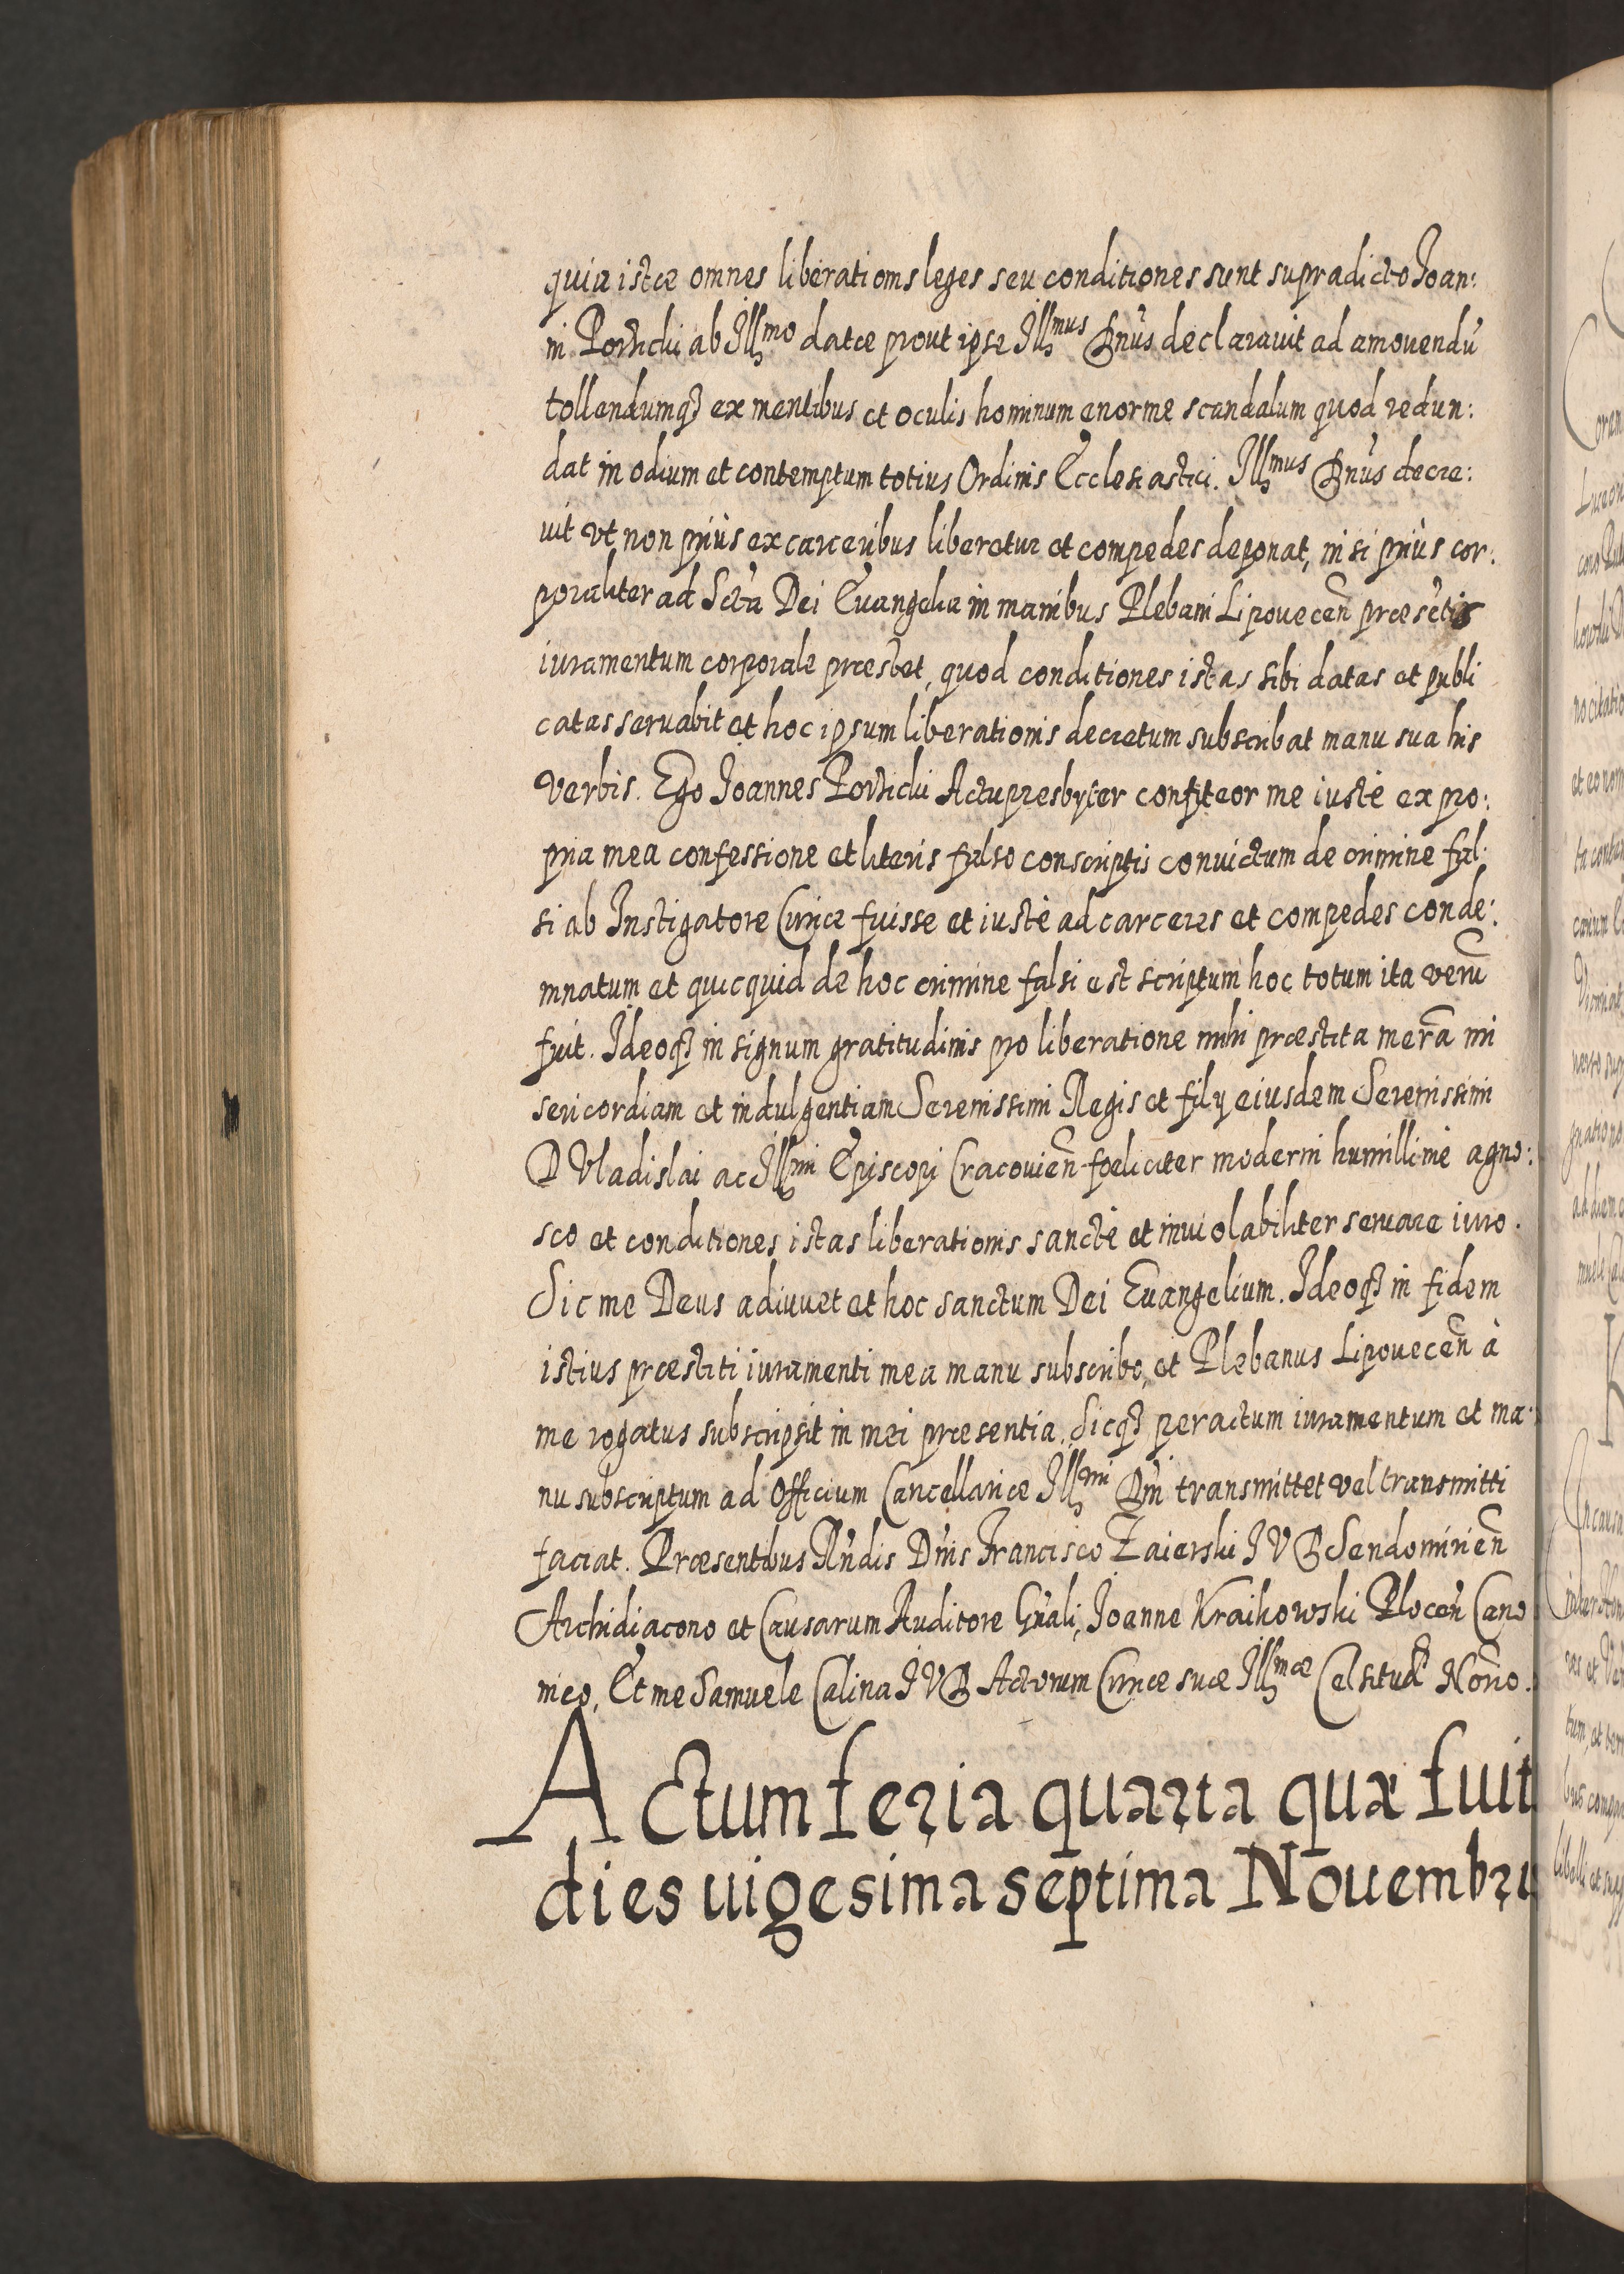 quia istæ omnes liberationis leges seu conditiones sunt supradicto Joan:
ni Porticki ab Illmo datæ prout ipse Illmus Dnus declarauit ad amouendu
tollendumq ex mentibus et oculis hominum enorme scandalum quod redun:
dat in odium et contemptum totius Ordinis Ecclesiastici. Illmus Dnus decre:
uit vt non priùs ex carceribus liberetur et compedes deponat, nisi priùs cor:
poraliter ad Scta Dei Euangelia in manibus Plebani Lipouecen præsetis
iuramentum corporale præstet, quod conditiones istas sibi datas et publi
catas seruabit et hoc ipsum liberationis decretum subscribat manu sua his
verbis. Ego Joannes Porticki Actupresbyter confiteor me iustè ex pro:
pria mea confessione et literis falso conscriptis conuictum de crimine fal:
si ab Instigatore Curiæ fuisse et iustè ad carceres et compedes conde:
mnatum et quicquid de hoc crimine falsi est scriptum hoc totum ita veru
fuit. Ideoq in signum gratitudinis pro liberatione mihi præstita mera mi
sericordiam et indulgentiam Serenissimi Regis et filÿ eiusdem Serenissimi
D Vladislai ac Illmi Episcopi Cracouien fœliciter moderni humillimè agno:
sco et conditiones istas liberationis sanctè et inuiolabiliter seruare iuro.
Sic me Deus adiuuet et hoc sanctum Dei Euangelium. Ideoq in fidem
istius præstiti iuramenti mea manu subscribo, et Plebanus Lipouecen à
me rogatus subscripsit in mei præsentia. Sicq peractum iuramentum et ma:
nu subscriptum ad Officium Cancellariæ Illmi Dni transmittet vel transmitti
faciat. Præsentibus Rndis Dnis Francisco Zaierski J V D Sendomirien
Archidiacono et Causarum Auditore Gnali, Joanne Kraikowski Plocen Cano
nico, Et me Samuele Calina J V D Actorum Curiæ suæ Illmæ Celsitud Norio.
Actum feria quarta quæ fuit
dies uigesima septima Nouembris